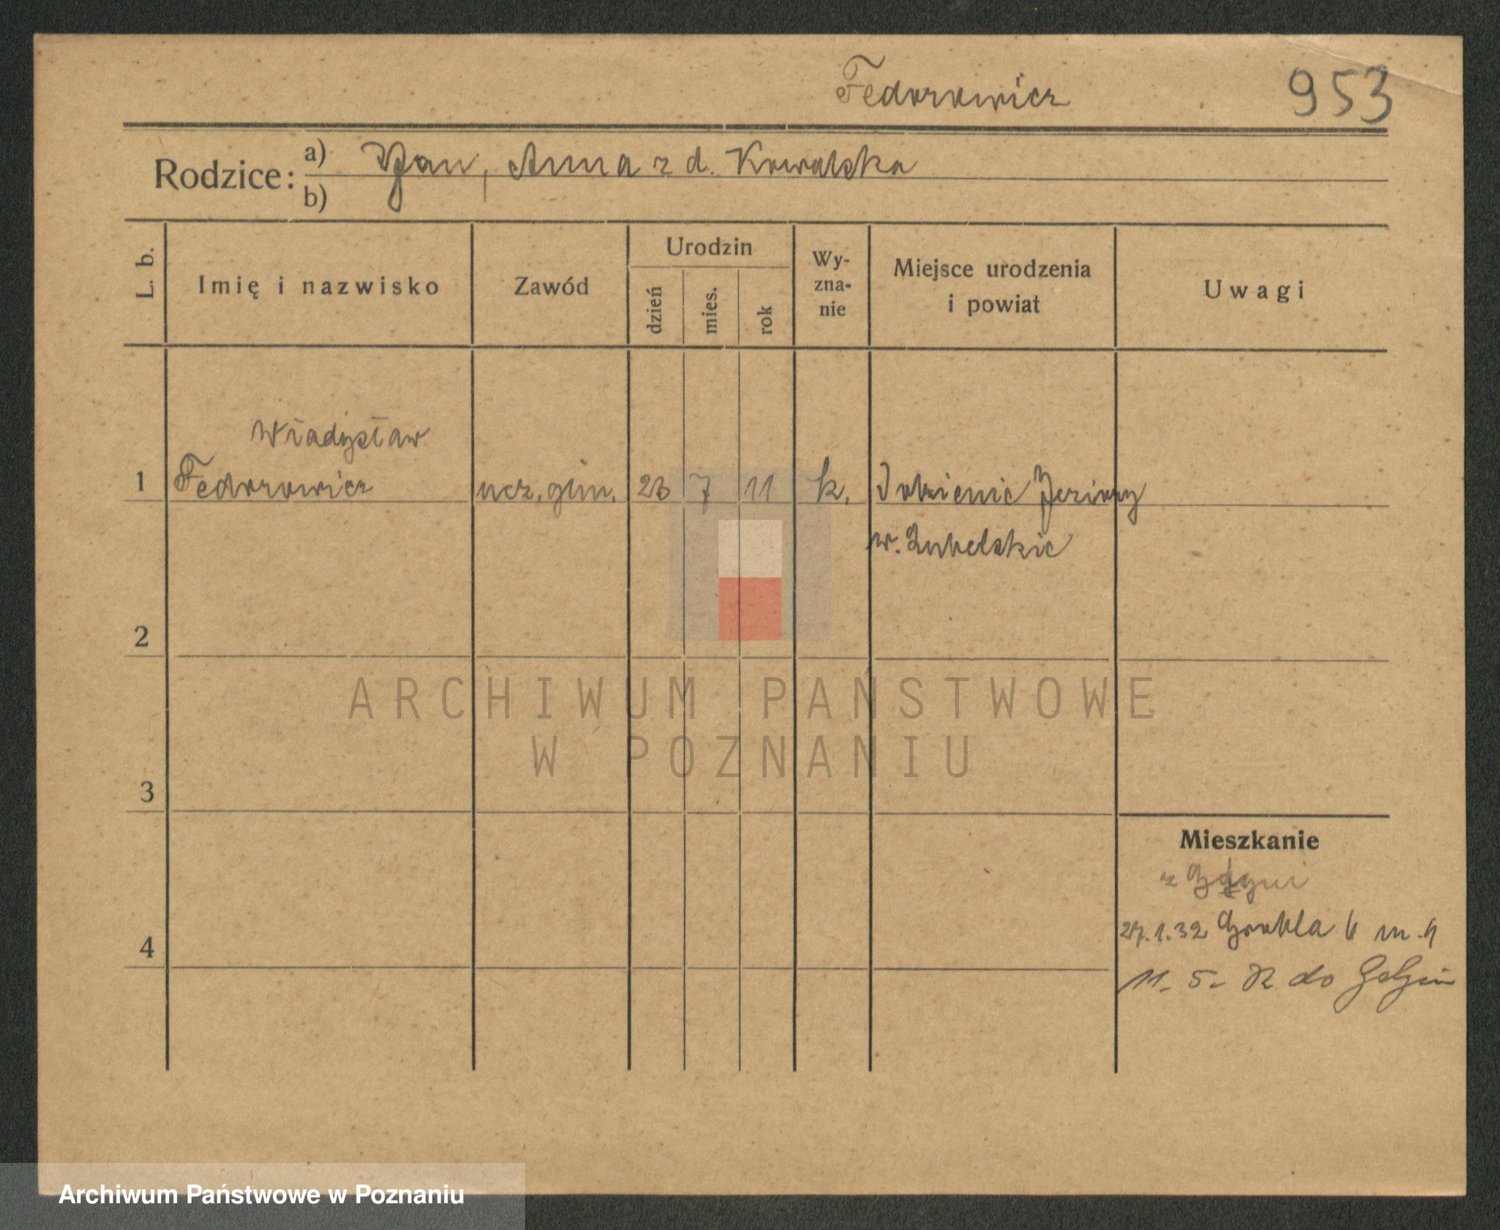 Fedorowicz 953
Rodzice: a) Jan, Anna z d. Kowalska
b)
L. b. Imię i nazwisko Zawód Urodzin dzień mies. rok Wy-zna-nie Miejsce urodzenia i powiat Uwagi
Władysław
1 Fedorowicz ucz. gim. 23 7 11 k. Jeziory
w. Lubelskie
2
ARCHIWUM PAŃSTWOWE
W POZNANIU
3
Mieszkanie
z Gdyni
27.1.32 6 m. 4
4
11. 5. 32 do
Archiwum Państwowe w Poznaniu